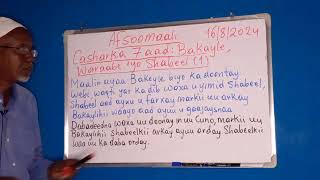 Afsoomaali 16/8/2024
Casharka 7aad: Bakayle,
Waraabe iyo Shabeel (1)
Maalin ayaa Bakeyle biyo ka doontay
webi waqti yar ka dib waxa u yimid Shabeel,
Shabeel aad ayuu u tarxay markii uu arkay
Bakaylihii waayo aad ayuu u gaajaysnaa
Dabadeedna waxa uu doonay inuu Cuno, markii uu
Bakaylihii Shabeelkii arkay ayuu orday Shabeelkii
uu ka daba orday.